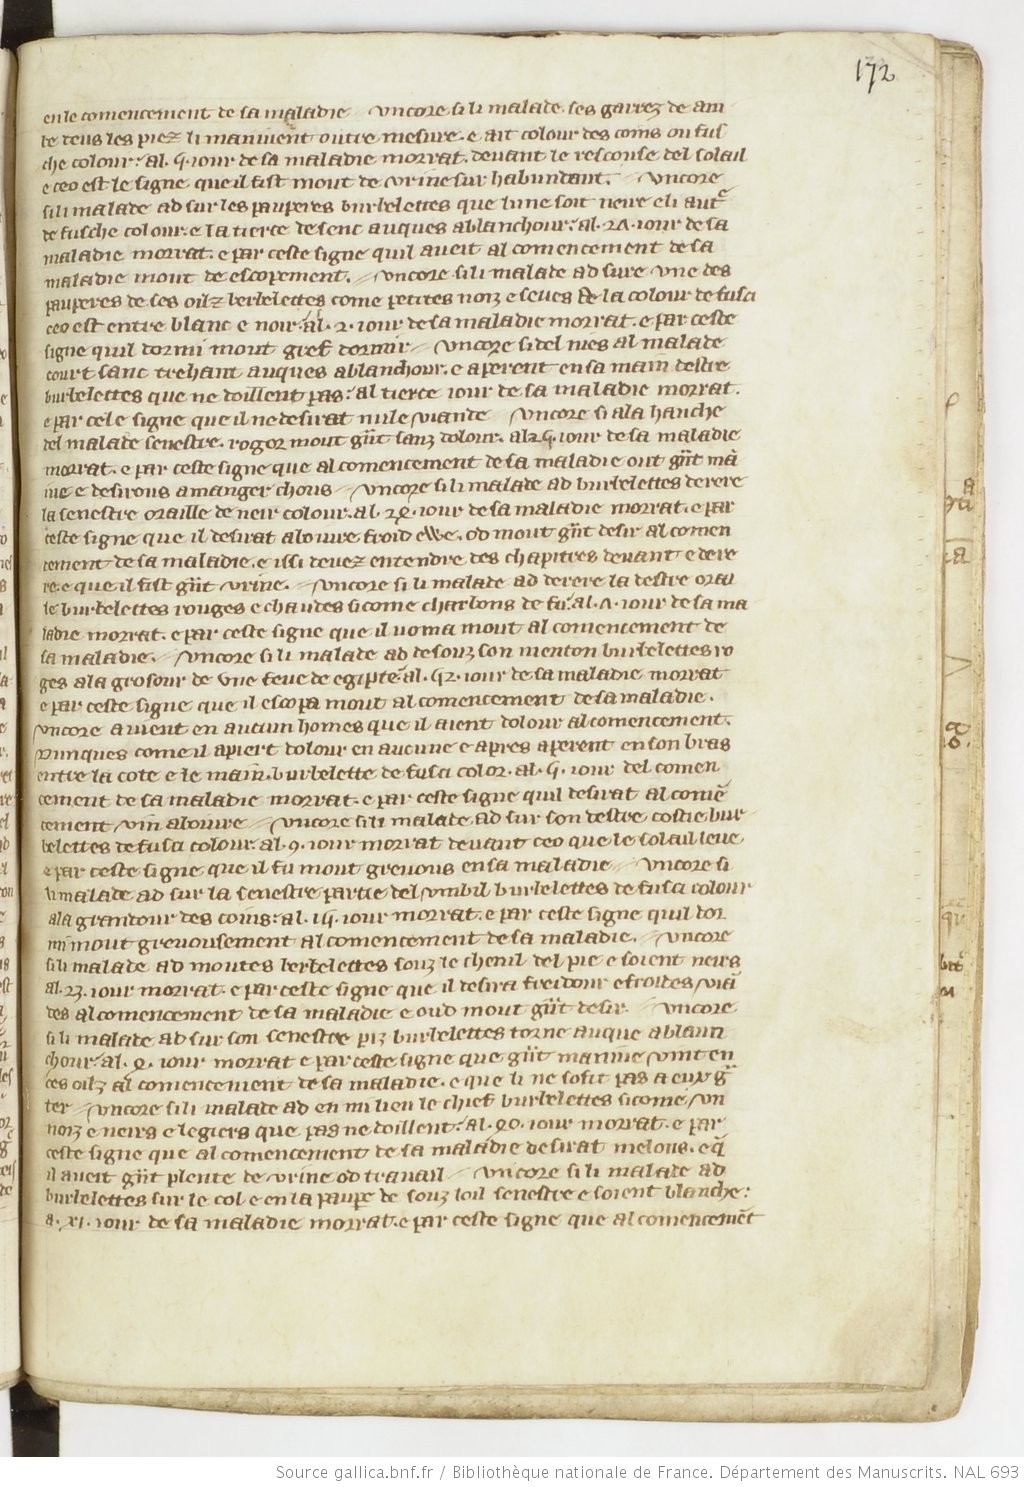 172
en le comencement de sa maladie uncore si li malade ses garrez de am
be deus les piez li maniuent outre mesure. e ait colour des coins ou fus
che colour: al .9. iour de sa maladie morrat. devant le resconse del solail
e ceo est le signe que il fist mout de urine sur habundant. uncore
si li malade ad sur les pauperes burbelettes que l'une soit neire e li autre
de fusche colour. e la tierce de senc auques ablanchour: al . iour de sa
maladie morrat. e par ceste signe quil aveit al comencement de sa
maladie mout de escopement. uncore si li malade ad sure une des
pauperes de ses oilz berbelettes come petites noiz e seues la colour de fusci
ceo est entre blanc e noir: al .2. iour de sa maladie morrat. e par ceste
signe quil dormi mout gref dormir uncore si del nies al malade
court sanc trehant auques ablanchour. e aperent en sa main destre
burbelettes que ne doillent pas: al tierce iour de sa maladie morrat.
e par cele signe que il ne desirat nule viande uncore si a la hanche
del malade senestre. rogor mout gnt sanz dolour. al iour de sa maladie
morrat. e par ceste signe que al comencement de sa maladie out gnt man
iue e desirous a manger chous uncore si li malade ad burbelettes derere
la senestre oraille de neir colour. al . iour de sa maladie morrat. e par
ceste signe que il desirat a boiure froid ewe. od mout gnt desir al comen
cement de sa maladie. e issi devez entendre des chapitres devant e dere
re. e que il fist gnt urine. uncore si li malade ad derere la destre orai
le burbelettes rouges e chaudes sicome charbons de fu: al . iour de sa ma
ladie morrat. e par ceste signe que il uoma mout al comencement de
sa maladie. uncore si li malade ad desouz son menton burbelettes ro
ges a la grosour de une feve de egipte: al . iour de sa maladie morrat
e par ceste signe que il escopa mout al comencement de sa maladie.
uncore avient en aucun homes que il aient dolour al comencement.
Dunques come il apiert dolour en aucune e apres aperent en son bras
entre la cote e le main. burbelette de fusci color. al .9. iour del comen
cement de sa maladie morrat. e par ceste signe quil desirat al comen
cement vin a boiure uncore si li malade ad sur son destre costie bur
belettes de fusci colour. al .9. iour morrat devant ceo que le solail leve
e par ceste signe que il fu mout grevous en sa maladie uncore si
li malade ad sur la senestre partie del umbil burbelettes de fusci colour
a la grandour des coins: al . iour morrat. e par ceste signe quil dor
mi mout grevousement al comencement de sa maladie. uncore
si li malade ad moutes berbelettes souz le chenil del pie e soient neirs
al .23. iour morrat. e par ceste signe que il desira freidour e froides vian
des al comencement de sa maladie e oud mout gnt desir. uncore
si li malade ad sur son senestre piz burbelettes torne auque ablaun
chour: al . iour morrat e par ceste signe que gnt maniue vint en
ces oilz al comencement de sa maladie. e que li ne sofit pas a eux g
ter uncore si li malade ad en mi lieu le chief burbelettes sicome un
noiz e neirs e legiers que pas ne doillent: al . iour morrat. e par
ceste signe que al comencement de sa maladie desirat melons. e q
il aveit gnt plente de urine od travail uncore si li malade ad
burbelettes sur le col e en la paupe de souz l oil senestre e soient blanche:
a .xi. iour de sa maladie morrat. e par ceste signe que al comencement
Source gallica.bnf.fr / Bibliothèque nationale de France. Département des Manuscrits. NAL 693